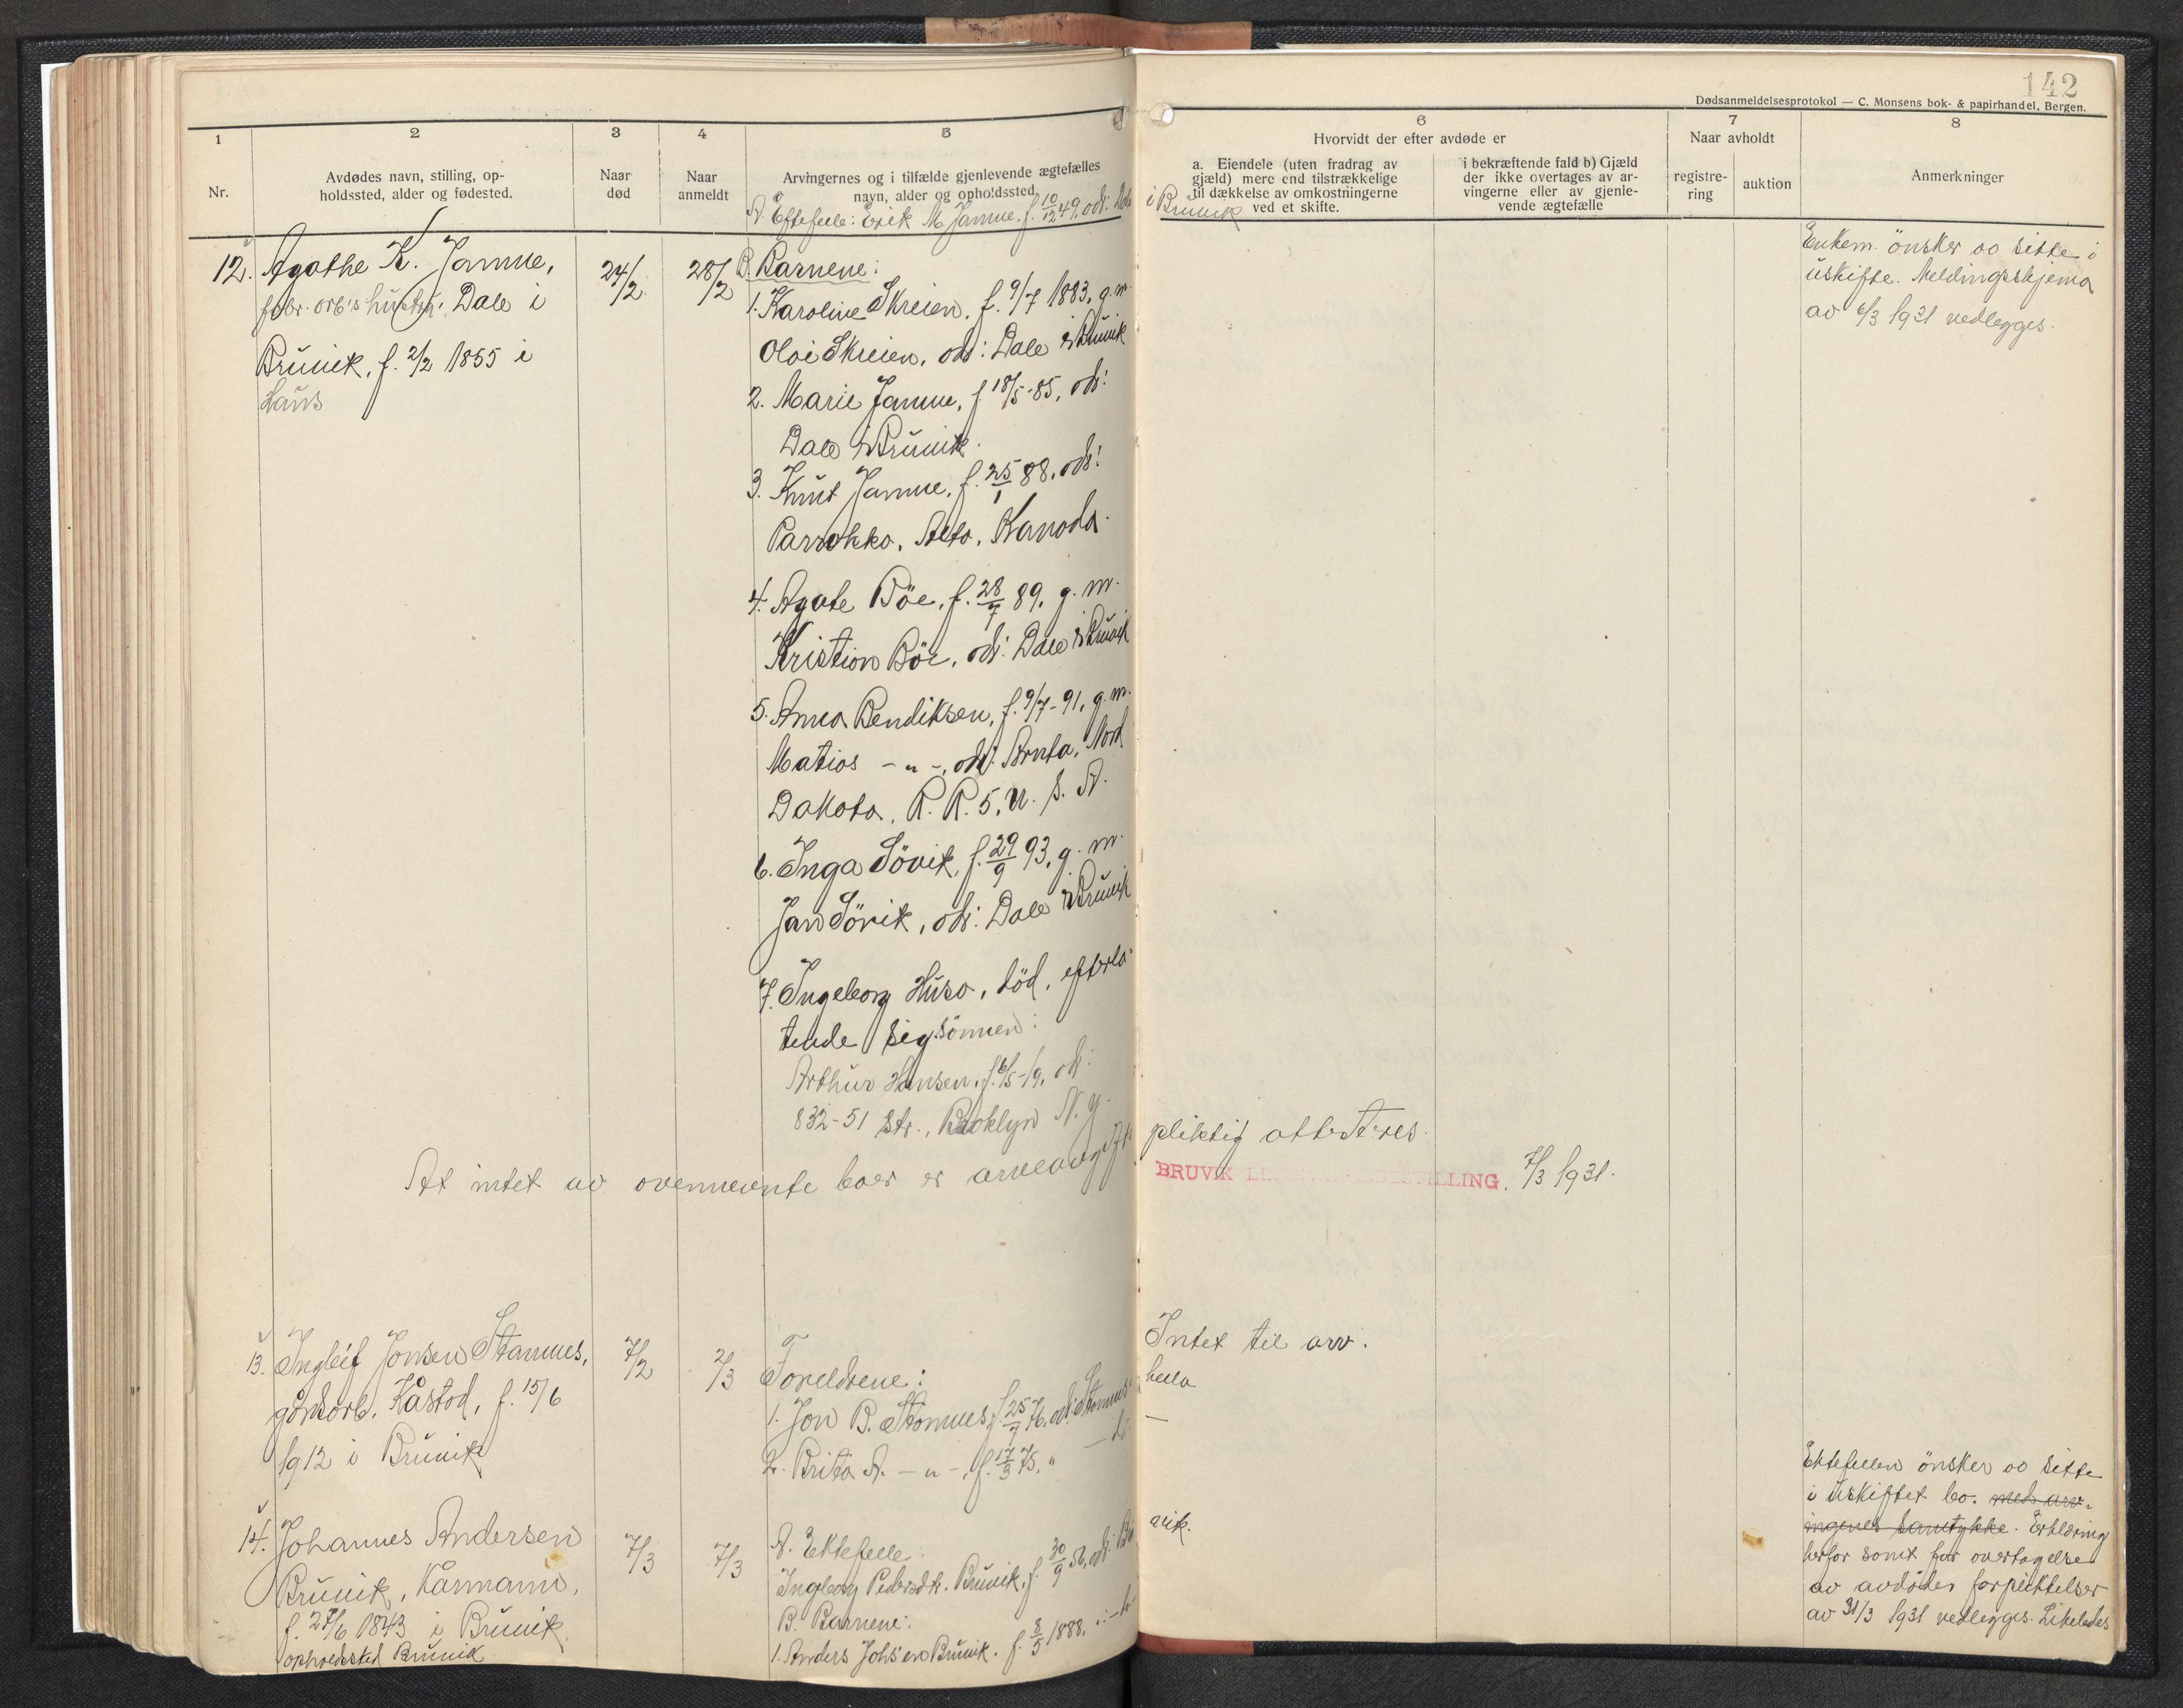 142
Dødsanmeldelsesprotokol — C. Monsens bok- & papirhandel, Bergen.
1
Nr.
2
Avdødes navn, stilling, op-
holdssted, alder og fødested.
3
Naar
død
4
Naar
anmeldt
5
Arvingernes og i tilfælde gjenlevende ægtefælles
navn, alder og opholdssted.
6
Hvorvidt der efter avdøde er
a. Eiendele (uten fradrag av
gjæld) mere end tilstrækkelige
til dækkelse av omkostningerne
ved et skifte.
i bekræftende fald b) Gjæld
der ikke overtages av ar-
vingerne eller av gjenle-
vende ægtefælle
7
Naar avholdt
registre-
ring
auktion
8
Anmerkninger
12. Agathe K. Jamne,
fabr. arb's hustru, Dale i
Bruvik, f. 2/2 1855 i
Haus
24/2
28/2
A. Ektefelle: Erik M. Jamne, f. 10/12 49, ods: Dale
i Bruvik
B. Barnene:
1. Karoline Skreien, f. 9/7 1883, g. m.
Olai Skreien, ods: Dale i Bruvik
2. Marie Jamne, f. 18/5-85, ods:
Dale i Bruvik.
3. Knut Jamne, f. 25/1 88, ods:
Parrokko, Alta, Kanada.
4. Agate Böe, f. 28/7 89, g. m.
Kristian Böe, ods: Dale i Bruvik
5. Anna Bendiksen, f. 9/7-91, g. m.
Matias -"-, ods: Nord
Dakota, R. R. 5, U. S. A.
6. Inga Sövik, f. 29/9 93, g. m.
Jan Sövik, ods: Dale i Bruvik
7. Ingeborg Huso, död, efterla-
tende sig sönnen:
Arthur Hansen, f. 6/5-19, ods:
832-51 str., Brooklyn N. Y.
Enkem. önsker aa sitte i
uskifte. Meldingsskjema
av 6/3 1931 vedlegges.
At intet av ovennevnte boer er arveavgifts
pliktig attesteres.
BRUVIK LENSMANNSBESTILLING. 7/3 1931.
13. Ingleif Jonsen Stamnes,
gårdsarb, Kåstad, f. 15/6
1912 i Bruvik
7/2
2/3
Foreldrene:
1. Jon B. Stamnes, f. 25/7 76, ods: Stamnes-
hella
2. Brita A. -"-, f. 17/3 75, " — do —
Intet til arv.
14. Johannes Andersen
Bruvik, Kårmann,
f. 27/6 1843 i Bruvik
opholdssted Bruvik
7/3
7/3
A. Ektefelle
Ingeborg Pedersdtr. Bruvik, f. 30/9 56, ods: Bru
vik.
B. Barnene:
1. Anders Johs'en Bruvik. f. 8/5 1888,
Ektefellen önsker aa sitte
i uskiftet bo. med arv-
ingenes samtykke. Erklæring
herfor samt for overtagelse
av avdödes forpliktelser
av 31/3 1931 vedlegges. Likeledes